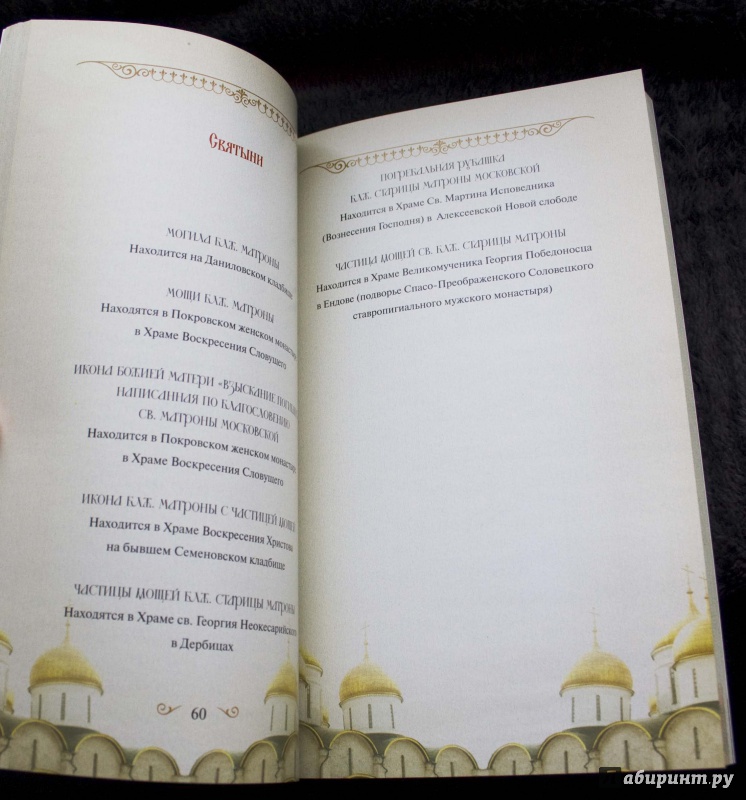 Святыни
МОГИЛА БЛЖ. МАТРОНЫ
Находится на Даниловском кладбище
МОЩИ БЛЖ. МАТРОНЫ
Находятся в Покровском женском монастыре
в Храме Воскресения Словущего
ИКОНА БОЖИЕЙ МАТЕРИ «ВЗЫСКАНИЕ
НАПИСАННАЯ ПО БЛАГОСЛОВЕНИЮ
СВ. МАТРОНЫ МОСКОВСКОЙ
Находится в Покровском женском монастыре
в Храме Воскресения Словущего
ИКОНА БЛЖ. МАТРОНЫ С ЧАСТИЦЕЙ МОЩЕЙ
Находится в Храме Воскресения Христова
на бывшем Семеновском кладбище
ЧАСТИЦЫ МОЩЕЙ БЛЖ. СТАРИЦЫ МАТРОНЫ
Находятся в Храме св. Георгия Неокесарийского
в Дербицах
60
ПОГРЕБАЛЬНАЯ РУБАШКА
БЛЖ. СТАРИЦЫ МАТРОНЫ МОСКОВСКОЙ
Находится в Храме Св. Мартина Исповедника
(Вознесения Господня) в Алексеевской Новой слободе
ЧАСТИЦА МОЩЕЙ СВ. БЛЖ. СТАРИЦЫ МАТРОНЫ
Находится в Храме Великомученика Георгия Победоносца
в Ендове (подворье Спасо-Преображенского Соловецкого
ставропигиального мужского монастыря)
лабиринт.ру